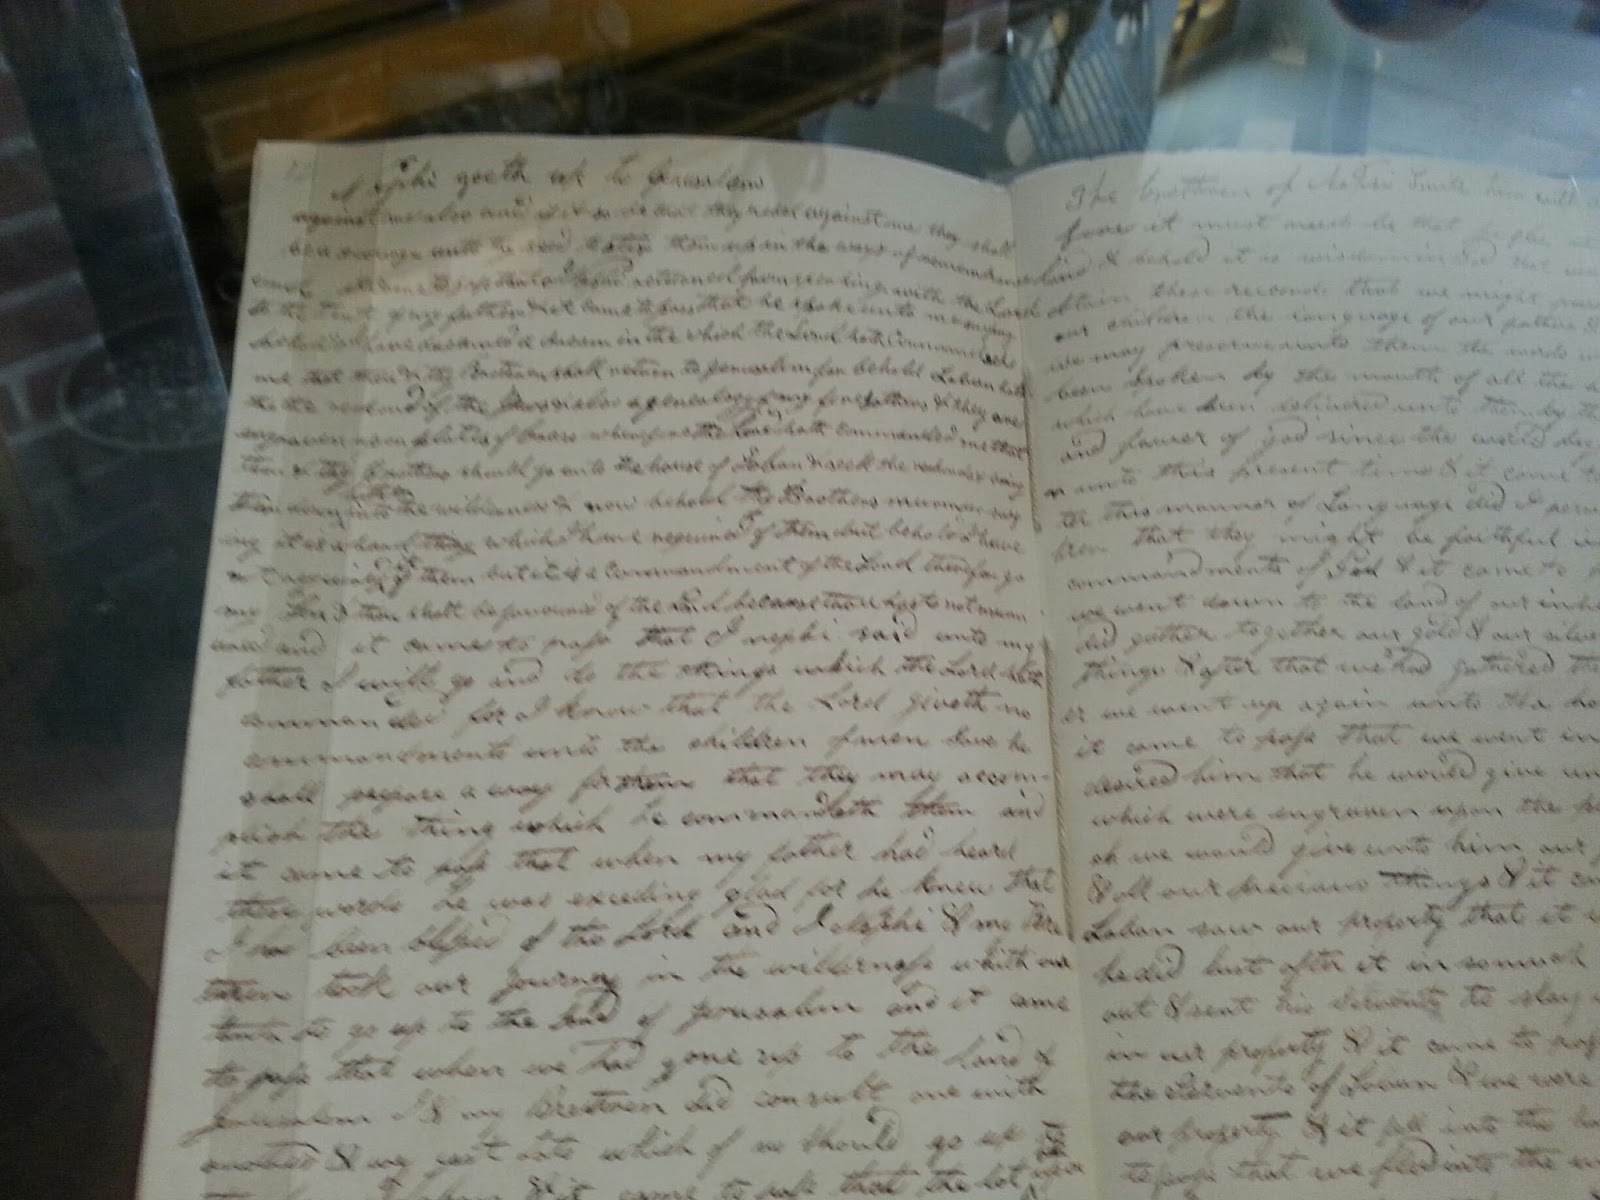 Nephi goeth up to Jerusalem
against me also and if it so be that they rebel against me they shall
be a scourge unto thy seed to stir them up in the ways of remembrance
came to pass that I Nephi returned from speaking with the Lord
to the tent of my father & it came to pass that he spake unto me saying
behold I have dreamed a dream in the which the Lord hath Commanded
me that thou & thy Brethren shall return to Jerusalem for behold Laban hath
the the record of the Jews & also a genealogy of my forefathers & they are
engraven upon plates of brass wherefore the Lord hath commanded me that
thou & thy Brothers should go unto the house of Laban & seek the records & bring
them down into the wilderness & now behold thy Brothers murmur say
ing it is a hard thing which I have required of them but behold I have
not required it of them but it is a Commandment of the Lord therefore go
my Son & thou shalt be favoured of the Lord because thou hast not mur
mured and it came to pass that I nephi said unto my
father I will go and do the things which the Lord hath
commanded for I know that the Lord giveth no
commandments unto the children of men save he
shall prepare a way for them that they may accom-
plish the thing which he commandeth them and
it came to pass that when my father had heard
these words he was exceding glad for he knew that
I had been blessed of the Lord and I Nephi & my bre
theren took our journey in the wilderness with our
tents to go up to the land of jerusalem and it came
to pass that when we had gone up to the land of
jerusalem I & my Bretheren did consult one with
another & we cast lots which of us should go up
& it came to pass that the lot
The brethren of Nephi Smite him with a
fore it must needs be that
& behold it is wisdom in God that we
obtain these records that we might preserve
our children the language of our fathers &
we may preserve unto them the words
been spoken by the mouth of all the
which have been delivered unto them by the
and power of god since the world
unto this present time & it came to
ter this manner of Language did I
that they might be faithful in
commandments of God & it came to
we went down to the land of our
did gather together our gold & our silver
things & after that we had gathered
er we went up again unto the
it came to pass that we went in
desired him that he would give
which were engraven upon the
ch we would give unto him our
& all our precious things & it
Laban saw our property that it
he did lust after it in somuch
out & sent his servants to slay
in our property & it came to pass
the servants of Laban & we were
our property & it fell into the
to pass that we fled into the